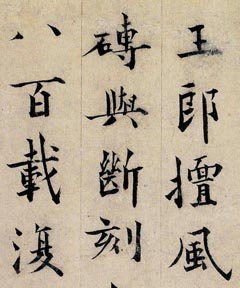 王郎擅風
磚與斷刻
八百載復